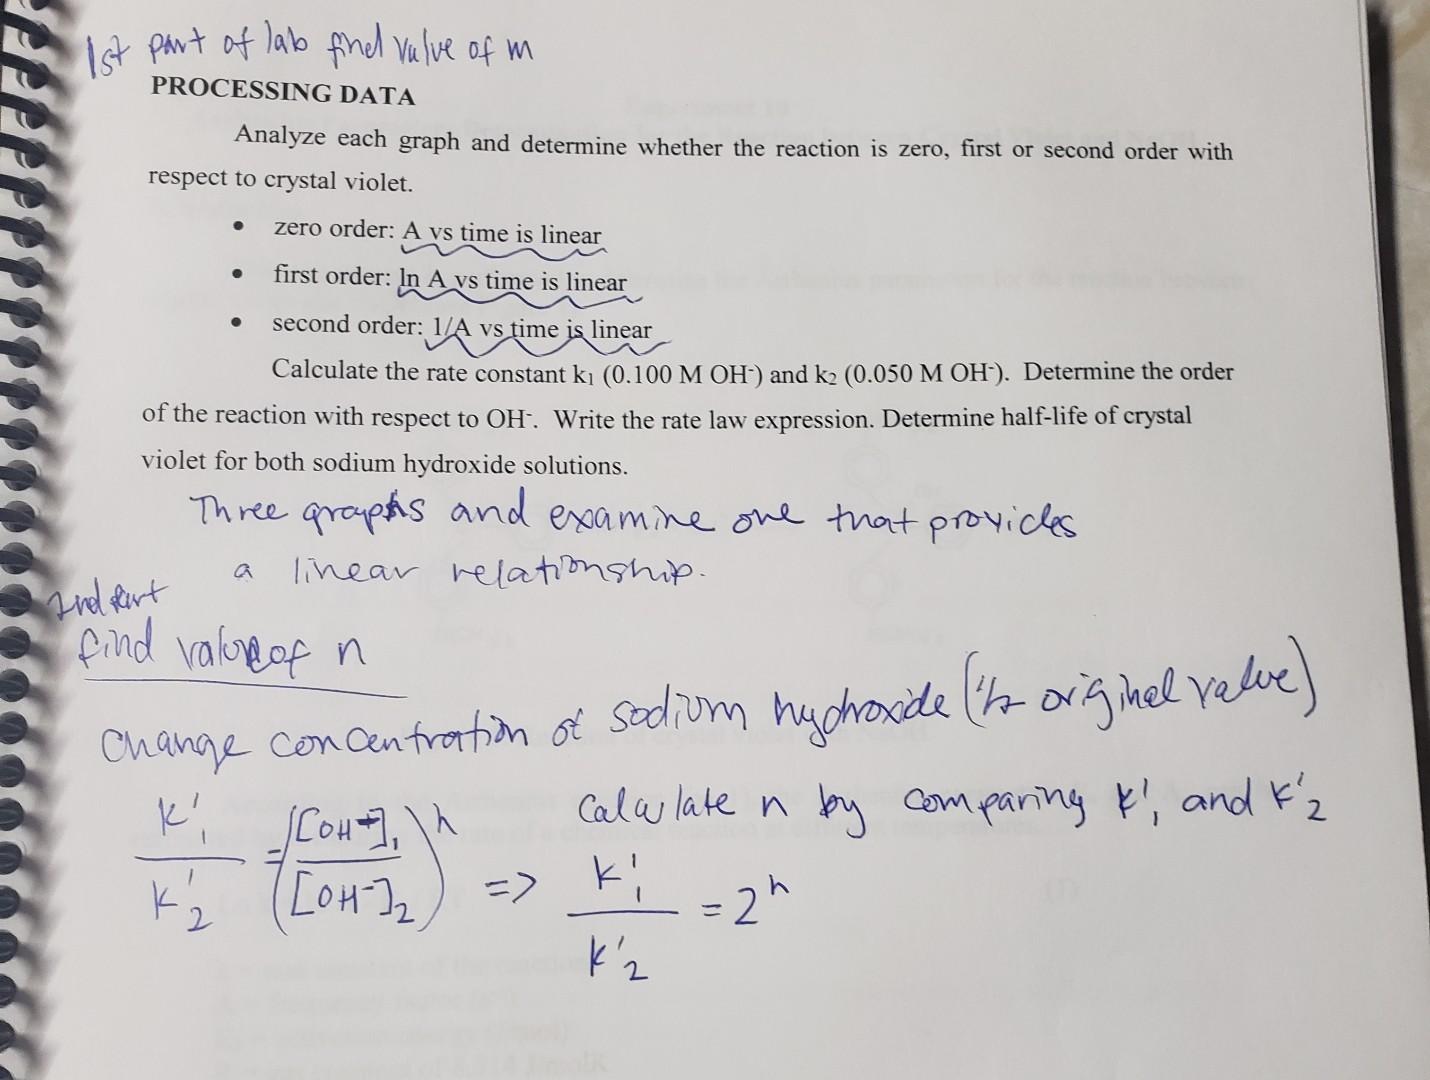 1st part of lab find value of m
PROCESSING DATA
Analyze each graph and determine whether the reaction is zero, first or second order with
respect to crystal violet.
• zero order: A vs time is linear
• first order: ln A vs time is linear
• second order: 1/A vs time is linear
Calculate the rate constant k₁ (0.100 M OH⁻) and k₂ (0.050 M OH⁻). Determine the order
of the reaction with respect to OH⁻. Write the rate law expression. Determine half-life of crystal
violet for both sodium hydroxide solutions.
Three graphs and examine one that provides
a linear relationship.
2nd part
find value of n
Change concentration of sodium hydroxide (1/2 original value)
k'₁/k'₂ = ([OH⁻]₁/[OH⁻]₂)ⁿ => k'₁/k'₂ = 2ⁿ
Calculate n by comparing k'₁ and k'₂